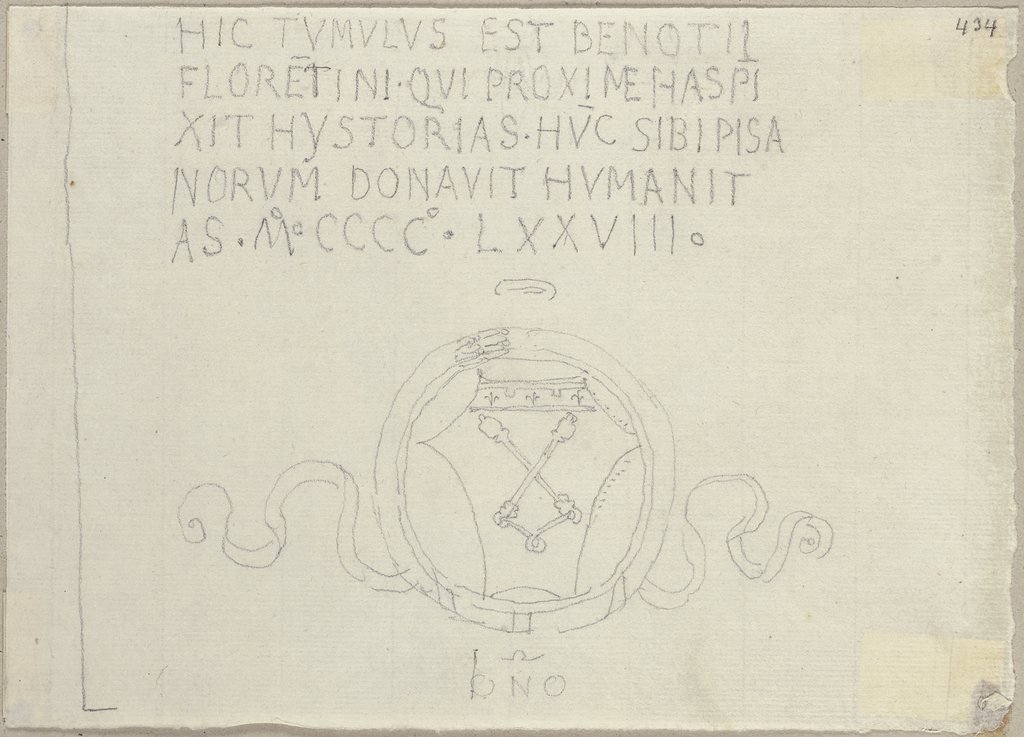 434
HIC TVMVLVS EST BENOTII
FLORĒTINI·QVI PROXIME HAS PI
XIT HYSTORIAS·HV̄C SIBI PISA
NORVM DONAVIT HVMANIT
AS·M°·CCCC°·LXXVIII·